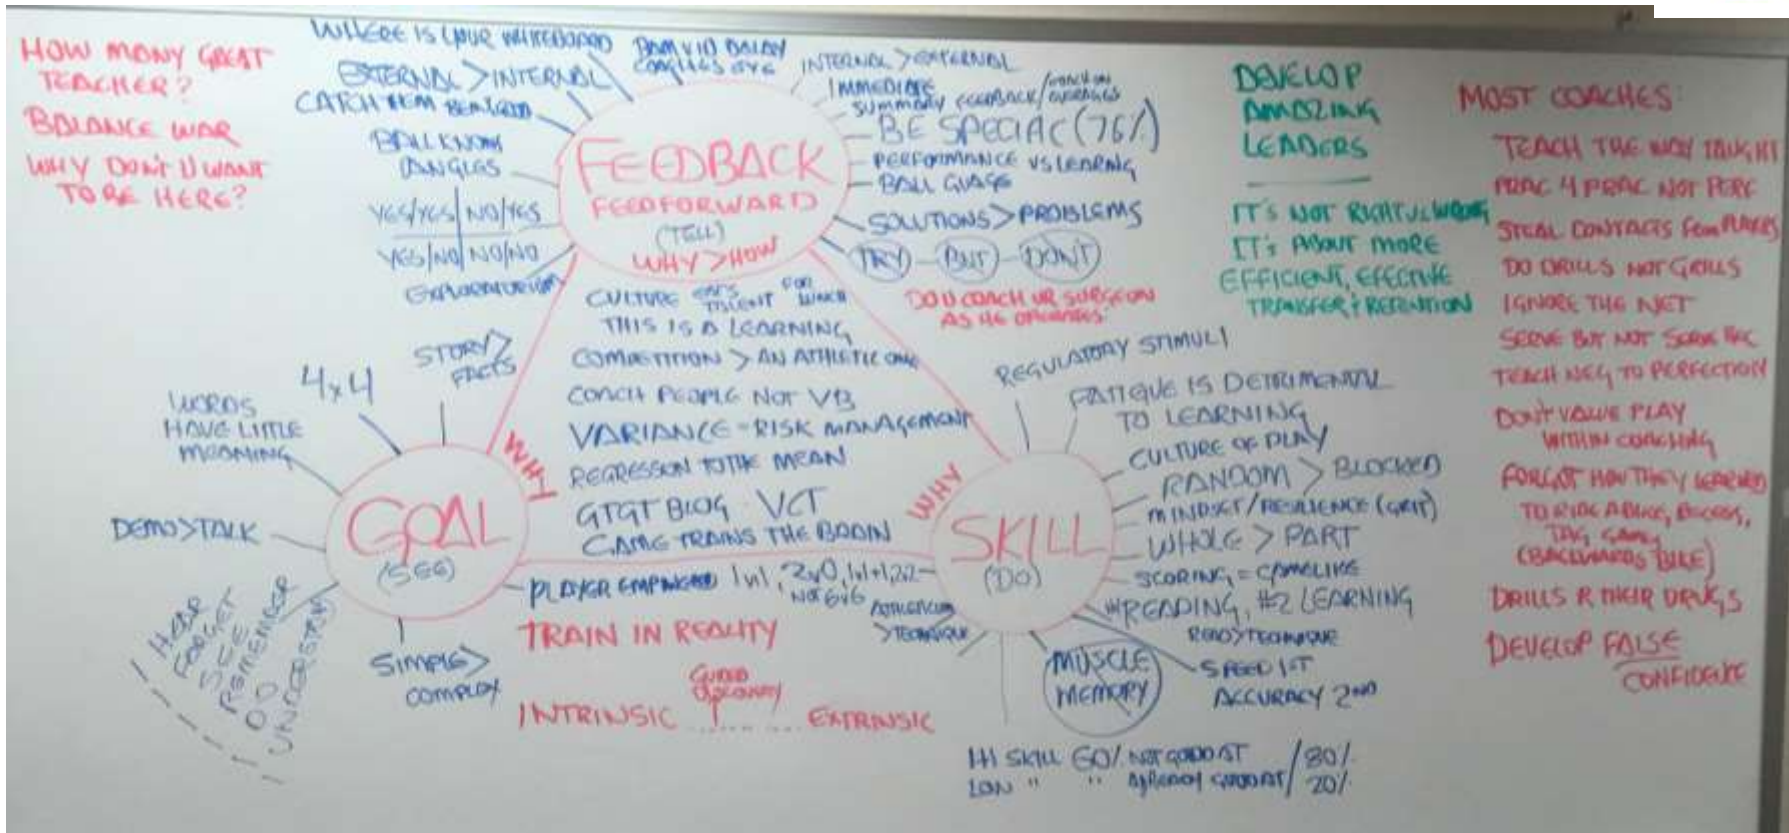 HOW MANY GREAT
TEACHER?
BALANCE WAR
WHY DON'T U WANT
TO BE HERE?
WHERE IS YOUR WHITEBOARD
EXTERNAL > INTERNAL
CATCH THEM
BALL KNOW
ANGLES
YES/YES NO/YES
YES/NO NO/NO
EXPLORATORIUM
COACHES EYE
INTERNAL > EXTERNAL
IMMEDIATE
SUMMARY FEEDBACK/
AVERAGES
BE SPECIAC (76%)
PERFORMANCE VS LEARNING
BALL
SOLUTIONS > PROBLEMS
TRY - BUT - DON'T
FEEDBACK
FEEDFORWARD
(TELL)
WHY > HOW
DO U COACH UR SURGEON
AS HE OPERATES
CULTURE EATS TALENT FOR LUNCH
THIS IS A LEARNING
COMPETITION > AN ATHLETIC ONE
COACH PEOPLE NOT VB
VARIANCE = RISK MANAGEMENT
REGRESSION TO THE MEAN
GTGT BLOG VCT
GAME TRAINS THE BRAIN
WHY
WHY
STORY >
FACTS
4x4
WORDS
HAVE LITTLE
MEANING
DEMO > TALK
GOAL
(SEE)
HEAR
FORGET
SEE
REMEMBER
DO
UNDERSTAND
SIMPLE >
COMPLEX
PLAYER 1v1, 2v0, 1v1+1, 2v2
NOT 6v6
TRAIN IN REALITY
GUIDED
DISCOVERY
INTRINSIC ........ EXTRINSIC
SKILL
(DO)
REGULATORY STIMULI
FATIGUE IS DETRIMENTAL
TO LEARNING
CULTURE OF PLAY
RANDOM > BLOCKED
MINDSET/RESILIENCE (GRIT)
WHOLE > PART
SCORING = GAMELIKE
#1 READING, #2 LEARNING
READ > TECHNIQUE
SPEED 1ST
ACCURACY 2ND
MUSCLE
MEMORY
> TECHNIQUE
HI SKILL 60% NOT GOOD AT / 80%
LOW " " ALREADY GOOD AT / 20%
DEVELOP
AMAZING
LEADERS
IT'S NOT RIGHT VS WRONG
IT'S ABOUT MORE
EFFICIENT, EFECTIVE
TRANSFER + RETENTION
MOST COACHES:
TEACH THE WAY TAUGHT
PRAC 4 PRAC NOT PERF
STEAL CONTACTS FROM PLAYERS
DO DRILLS NOT GRILLS
IGNORE THE NET
SERVE BUT NOT SERVE REC
TEACH NEG TO PERFECTION
DON'T VALUE PLAY
WITHIN COACHING
FORGOT HOW THEY LEARNED
TO RIDE A BIKE,
TAG GAME
(BACKWARDS BIKE)
DRILLS R THEIR DRUGS
DEVELOP FALSE
CONFIDENCE